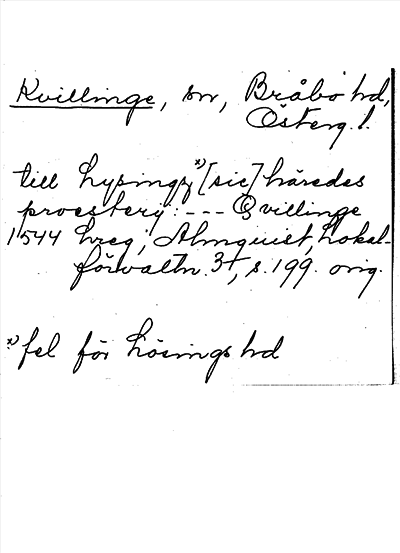 Kvillinge, sn, Bråbo hd,
Österg. l.
till Lysingz *) [sic] häredes
proesterij: --- Qvillinge
1544 hreg; Almquist, Lokal-
förvaltn. 3+, s. 199. orig.
*) fel för Lösings hd